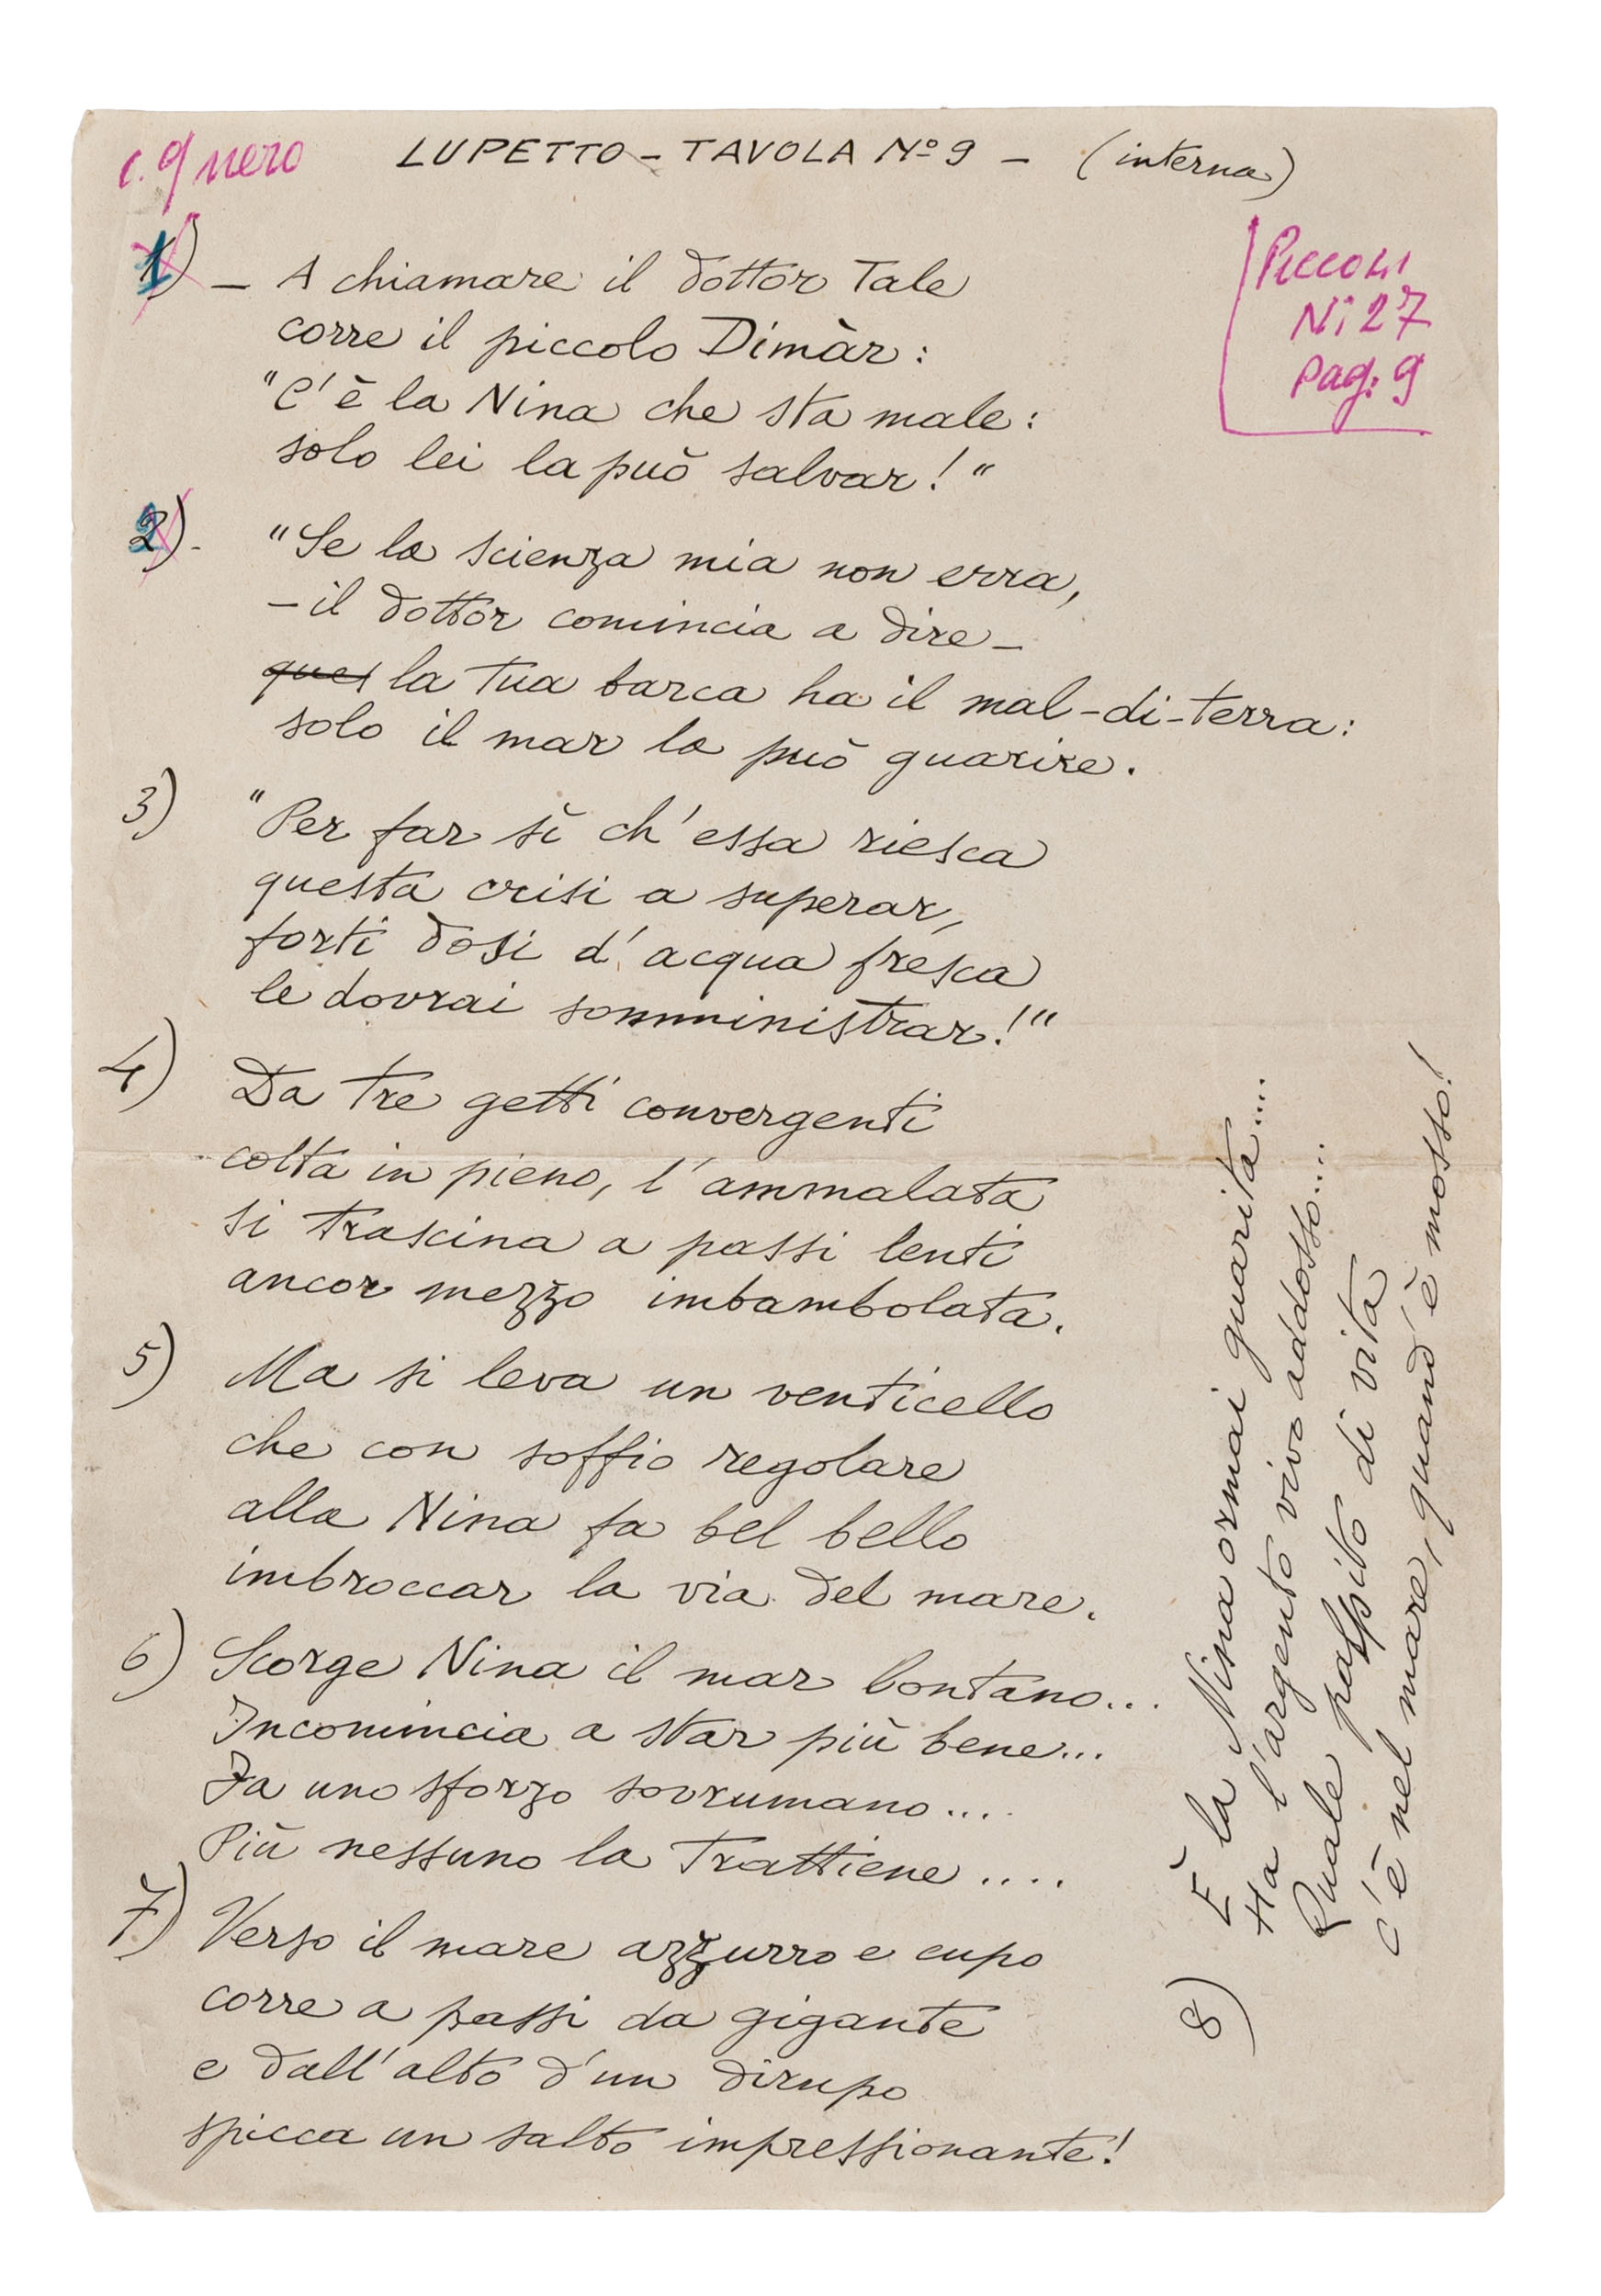 c. 9 nero
LUPETTO - TAVOLA Nº 9 - (interna)
Piccoli
Nº 27
pag. 9
1) - A chiamare il dottor Tale
corre il piccolo Dimàr:
"C'è la Nina che sta male:
solo lei la può salvar!"
2). "Se la scienza mia non erra,
- il dottor comincia a dire -
ques la tua barca ha il mal-di-terra:
solo il mar la può guarire.
3) "Per far sì ch'essa riesca
questa crisi a superar,
forti dosi d'acqua fresca
le dovrai somministrar!"
4) Da tre getti convergenti
colta in pieno, l'ammalata
si trascina a passi lenti
ancor mezzo imbambolata.
5) Ma si leva un venticello
che con soffio regolare
alla Nina fa bel bello
imbroccar la via del mare.
6) Scorge Nina il mar lontano...
Incomincia a star più bene...
Fa uno sforzo sovrumano....
Più nessuno la trattiene....
7) Verso il mare azzurro e cupo
corre a passi da gigante
e dall'alto d'un dirupo
spicca un salto impressionante!
8) È la Nina ormai guarita....
Ha l'argento vivo addosso....
Quale palpito di vita
c'è nel mare, quand'è mosso!